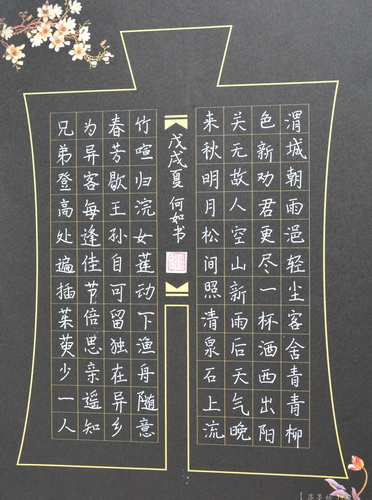 渭城朝雨浥轻尘客舍青青柳
色新劝君更尽一杯酒西出阳
关无故人空山新雨后天气晚
来秋明月松间照清泉石上流
竹喧归浣女莲动下渔舟随意
春芳歇王孙自可留独在异乡
为异客每逢佳节倍思亲遥知
兄弟登高处遍插茱萸少一人
戊戌夏 何如书